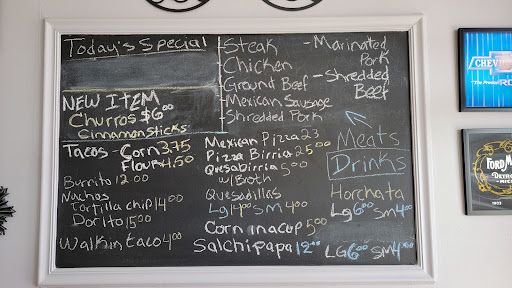 Today's Special
NEW ITEM
Churros $6.00
Cinnamon sticks
Tacos - Corn 3.75
Flour 4.50
Burrito 12.00
Nachos
Tortilla chip 14.00
Dorito 15.00
Walkin taco 4.00
Steak
Chicken
Ground Beef
Mexican Sausage
Shredded Pork
- Marinated
Pork
- Shredded
Beef
Meats
Mexican Pizza 23
Pizza Birria 25.00
Quesabirria 5.00
w/ Broth
Quesadillas
Lg 14.00 Sm 4.00
Corn in a cup 5.00
Salchipapa 12.00
Drinks
Horchata
LG 6.00 Sm 4.00
LG 6.00 Sm 4.00
CHEV
FORD M
DETRO
MIC
1903